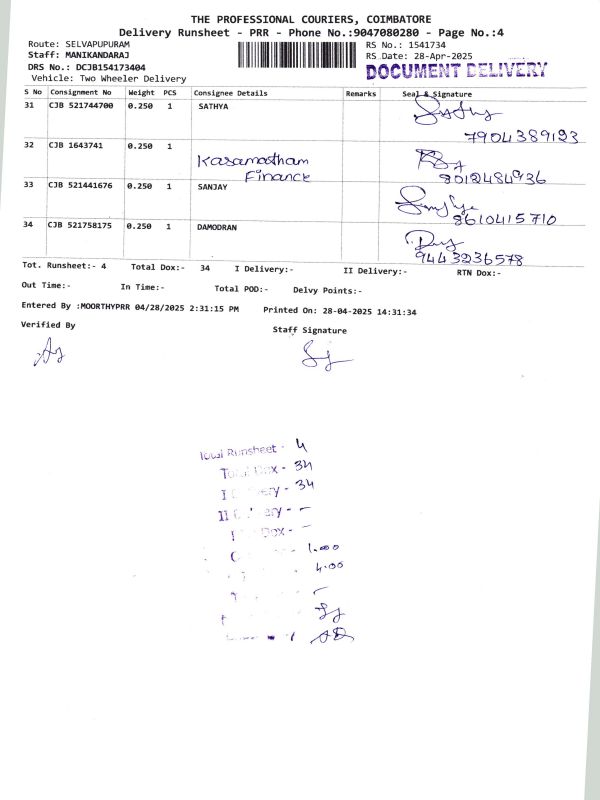 THE PROFESSIONAL COURIERS, COIMBATORE
Delivery Runsheet - PRR - Phone No.:9047080280 - Page No.:4
Route: SELVAPUPURAM
RS No.: 1541734
Staff: MANIKANDARAJ
RS Date: 28-Apr-2025
DRS No.: DCJB154173404
DOCUMENT DELIVERY
Vehicle: Two Wheeler Delivery
S No Consignment No Weight PCS Consignee Details Remarks Seal & Signature
31 CJB 521744700 0.250 1 SATHYA
7904389123
32 CJB 1643741 0.250 1
Kasamastham
Finance
8012484936
33 CJB 521441676 0.250 1 SANJAY
8610415710
34 CJB 521758175 0.250 1 DAMODRAN
9443236578
Tot. Runsheet:- 4 Total Dox:- 34 I Delivery:- II Delivery:- RTN Dox:-
Out Time:- In Time:- Total POD:- Delvy Points:-
Entered By :MOORTHYPRR 04/28/2025 2:31:15 PM Printed On: 28-04-2025 14:31:34
Verified By Staff Signature
Total Runsheet - 4
Dox - 34
I - 34
II -
Dox -
1.000
4.00